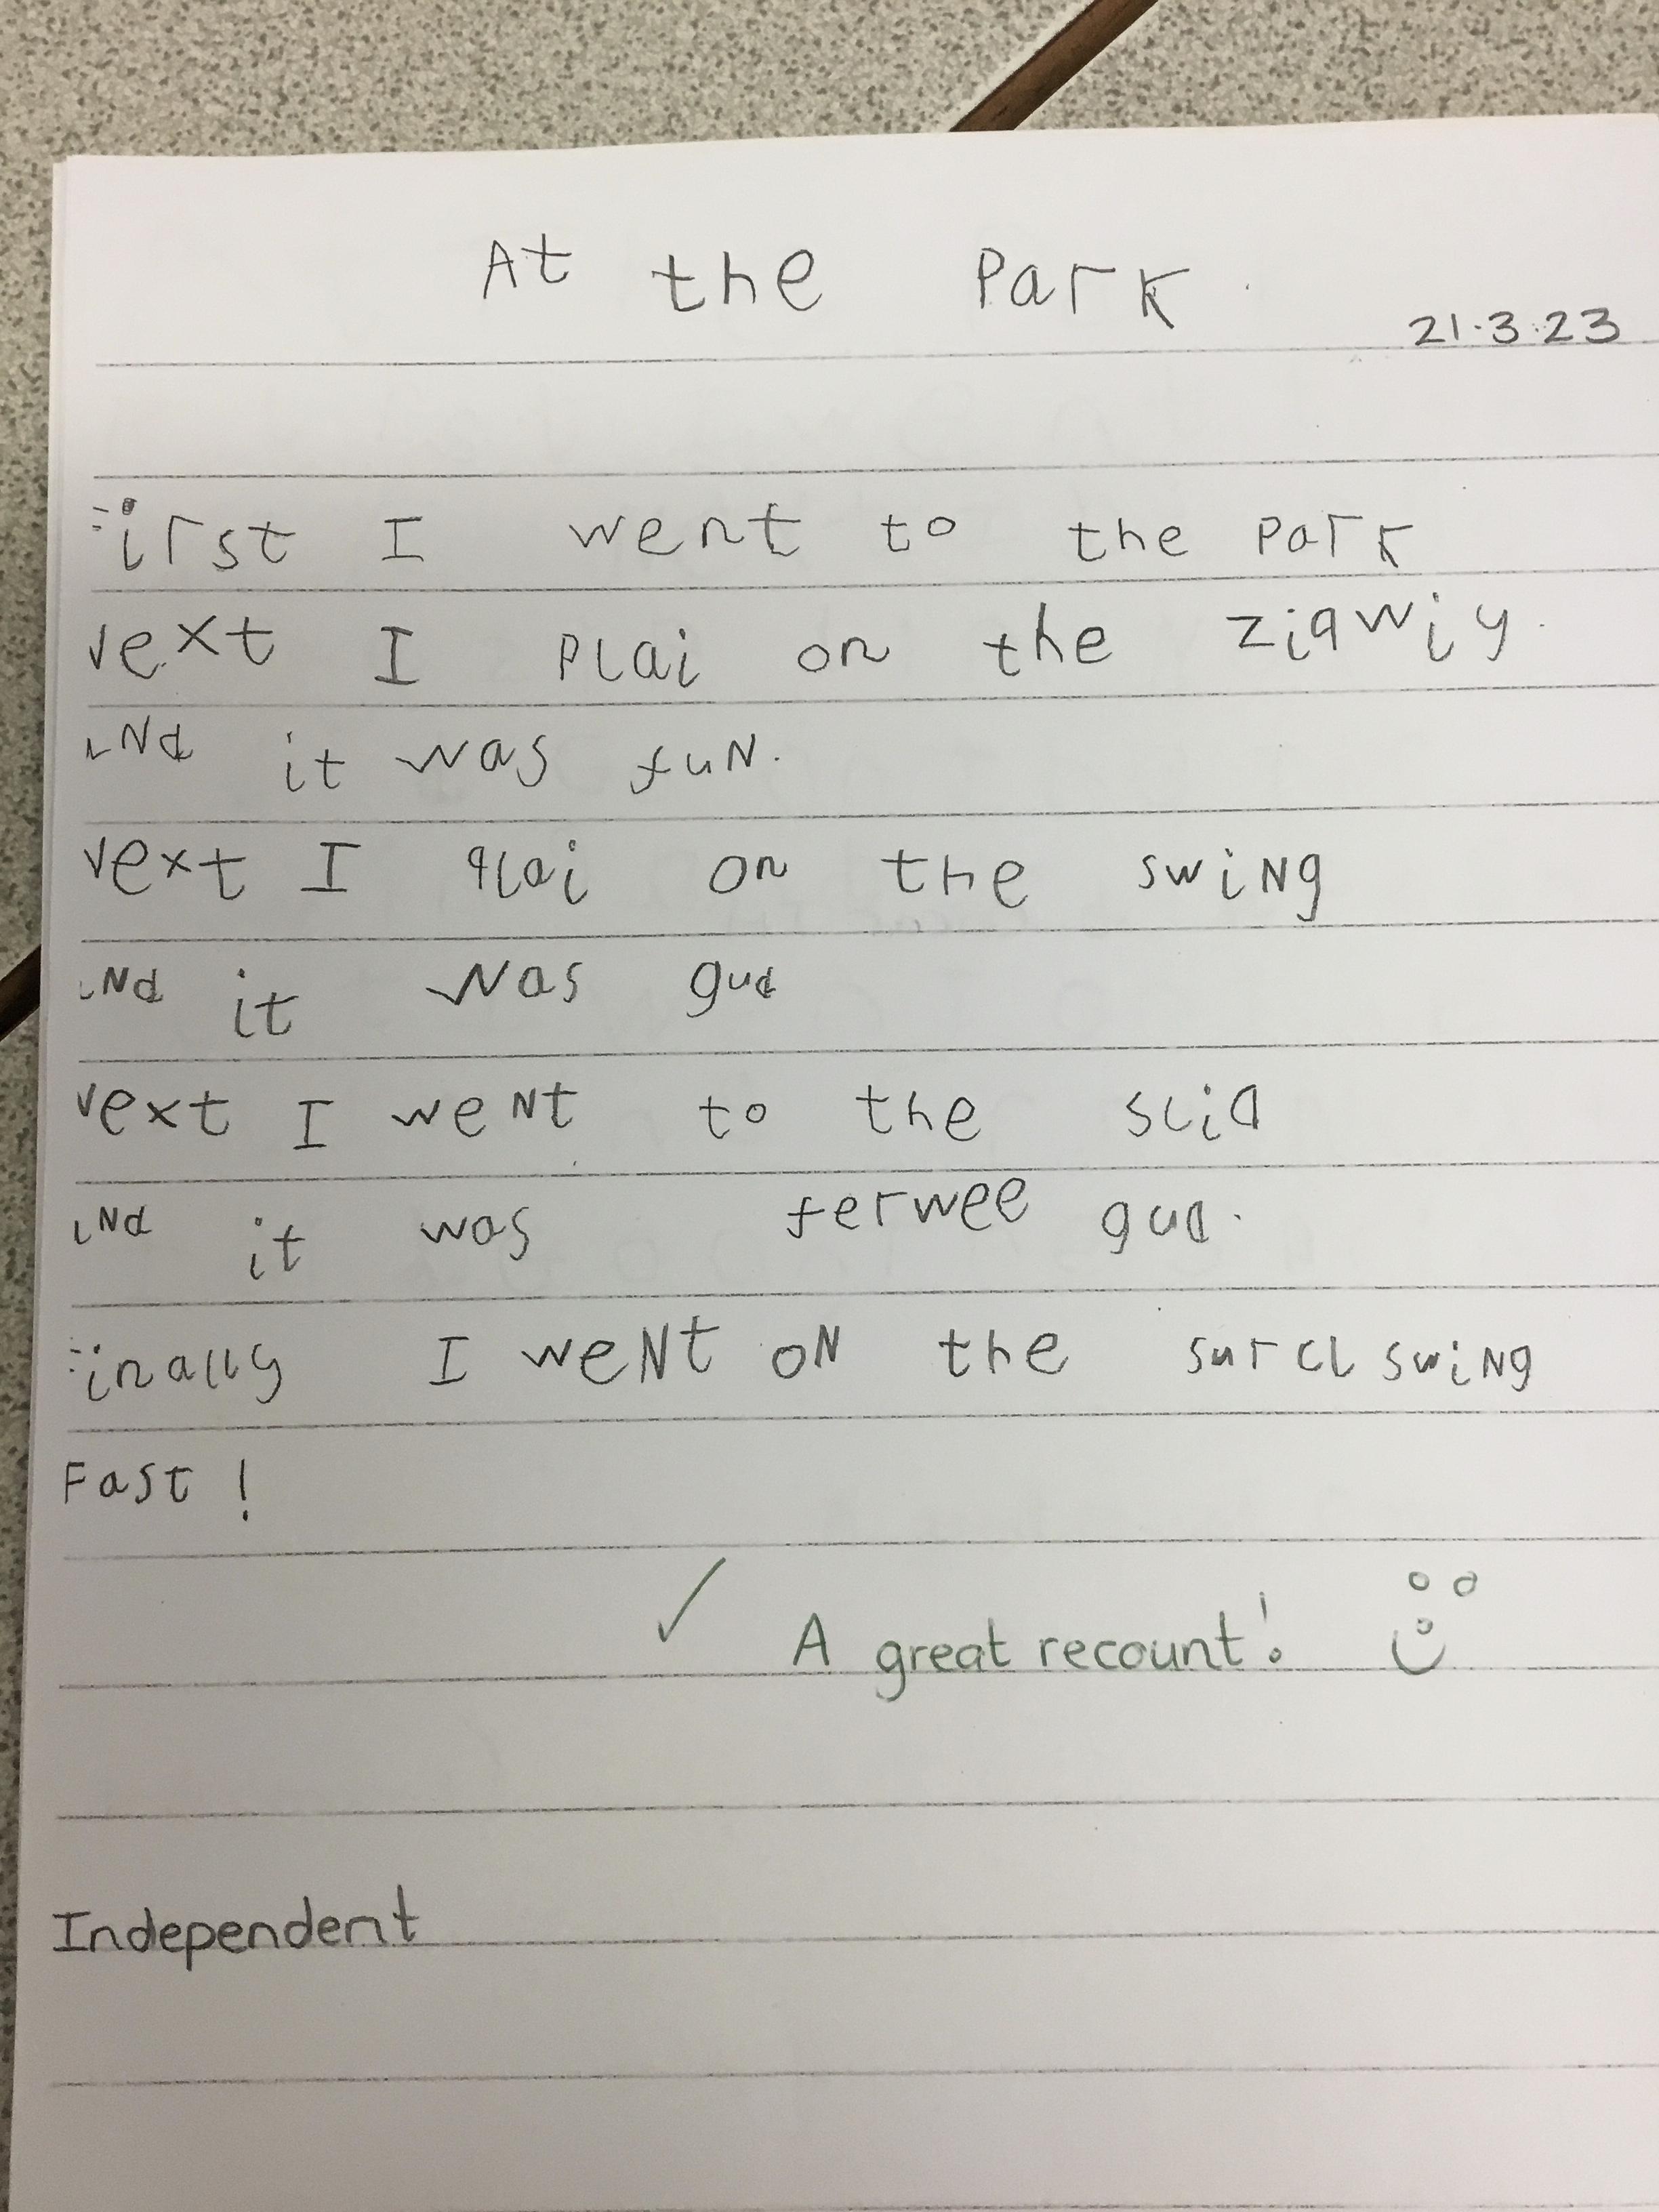 At the Park
21.3.23
First I went to the Park
Next I Plai on the ziqwiy.
and it was fuN.
Next I qlai on the swiNg
aNd it was gud
Next I weNt to the slid
aNd it was ferwee gud.
Finally I weNt oN the surcl swiNg
Fast!
✓ A great recount!
Independent